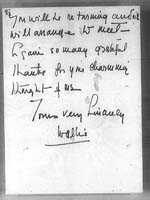 You will be returning and we
will arrange to meet -
Again so many grateful
thanks for your charming
thought of me
Yours very sincerely
Wallis